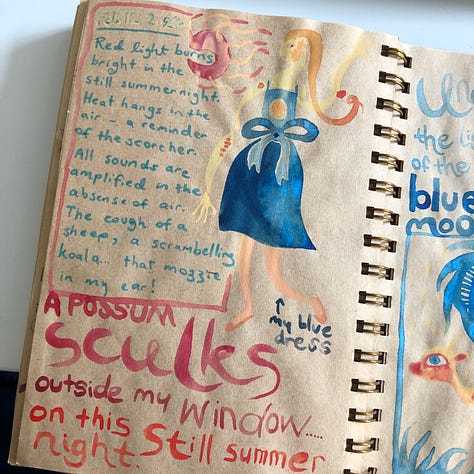 Red light burns
bright in the
still summer night.
Heat hangs in the
air - a reminder
of the scorcher.
All sounds are
amplified in the
absense of air.
The cough of a
sheep, a scrambelling
koala... that mozzie
in my ear!
↑
my blue
dress
A POSSUM
sculks
outside my window.....
on this Still summer
night.
the li
of the
blue
moo